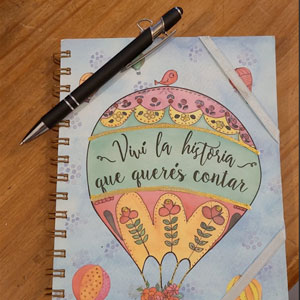 Viví la historia
que querés contar